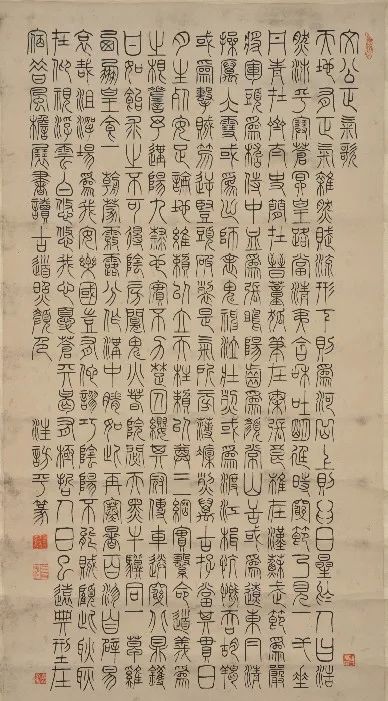 文公正氣歌
天地有正氣雜然賦流形下則為河嶽上則為日星於人曰浩
然沛乎塞蒼冥皇路當清夷含和吐明庭時窮節乃見一一垂
丹青在齊太史簡在晉董狐筆在秦張良椎在漢蘇武節為嚴
將軍頭為嵇侍中血為張睢陽齒為顏常山舌或為遼東帽清
操厲冰雪或為出師表鬼神泣壯烈或為渡江楫慷慨吞胡羯
或為擊賊笏逆豎頭破裂是氣所旁薄凜烈萬古存當其貫日
月生死安足論地維賴以立天柱賴以尊三綱實繫命道義為
之根嗟予遘陽九隸也實不力楚囚纓其冠傳車送窮北鼎鑊
甘如飴求之不可得陰房闃鬼火春院閟天黑牛驥同一皂雞
棲鳳皇食一朝蒙霧露分作溝中瘠如此再寒暑百沴自辟易
哀哉沮洳場為我安樂國豈有他謬巧陰陽不能賊顧此耿耿
在仰視浮雲白悠悠我心憂蒼天曷有極哲人日已遠典型在
宿昔風檐展書讀古道照顏色
平篆